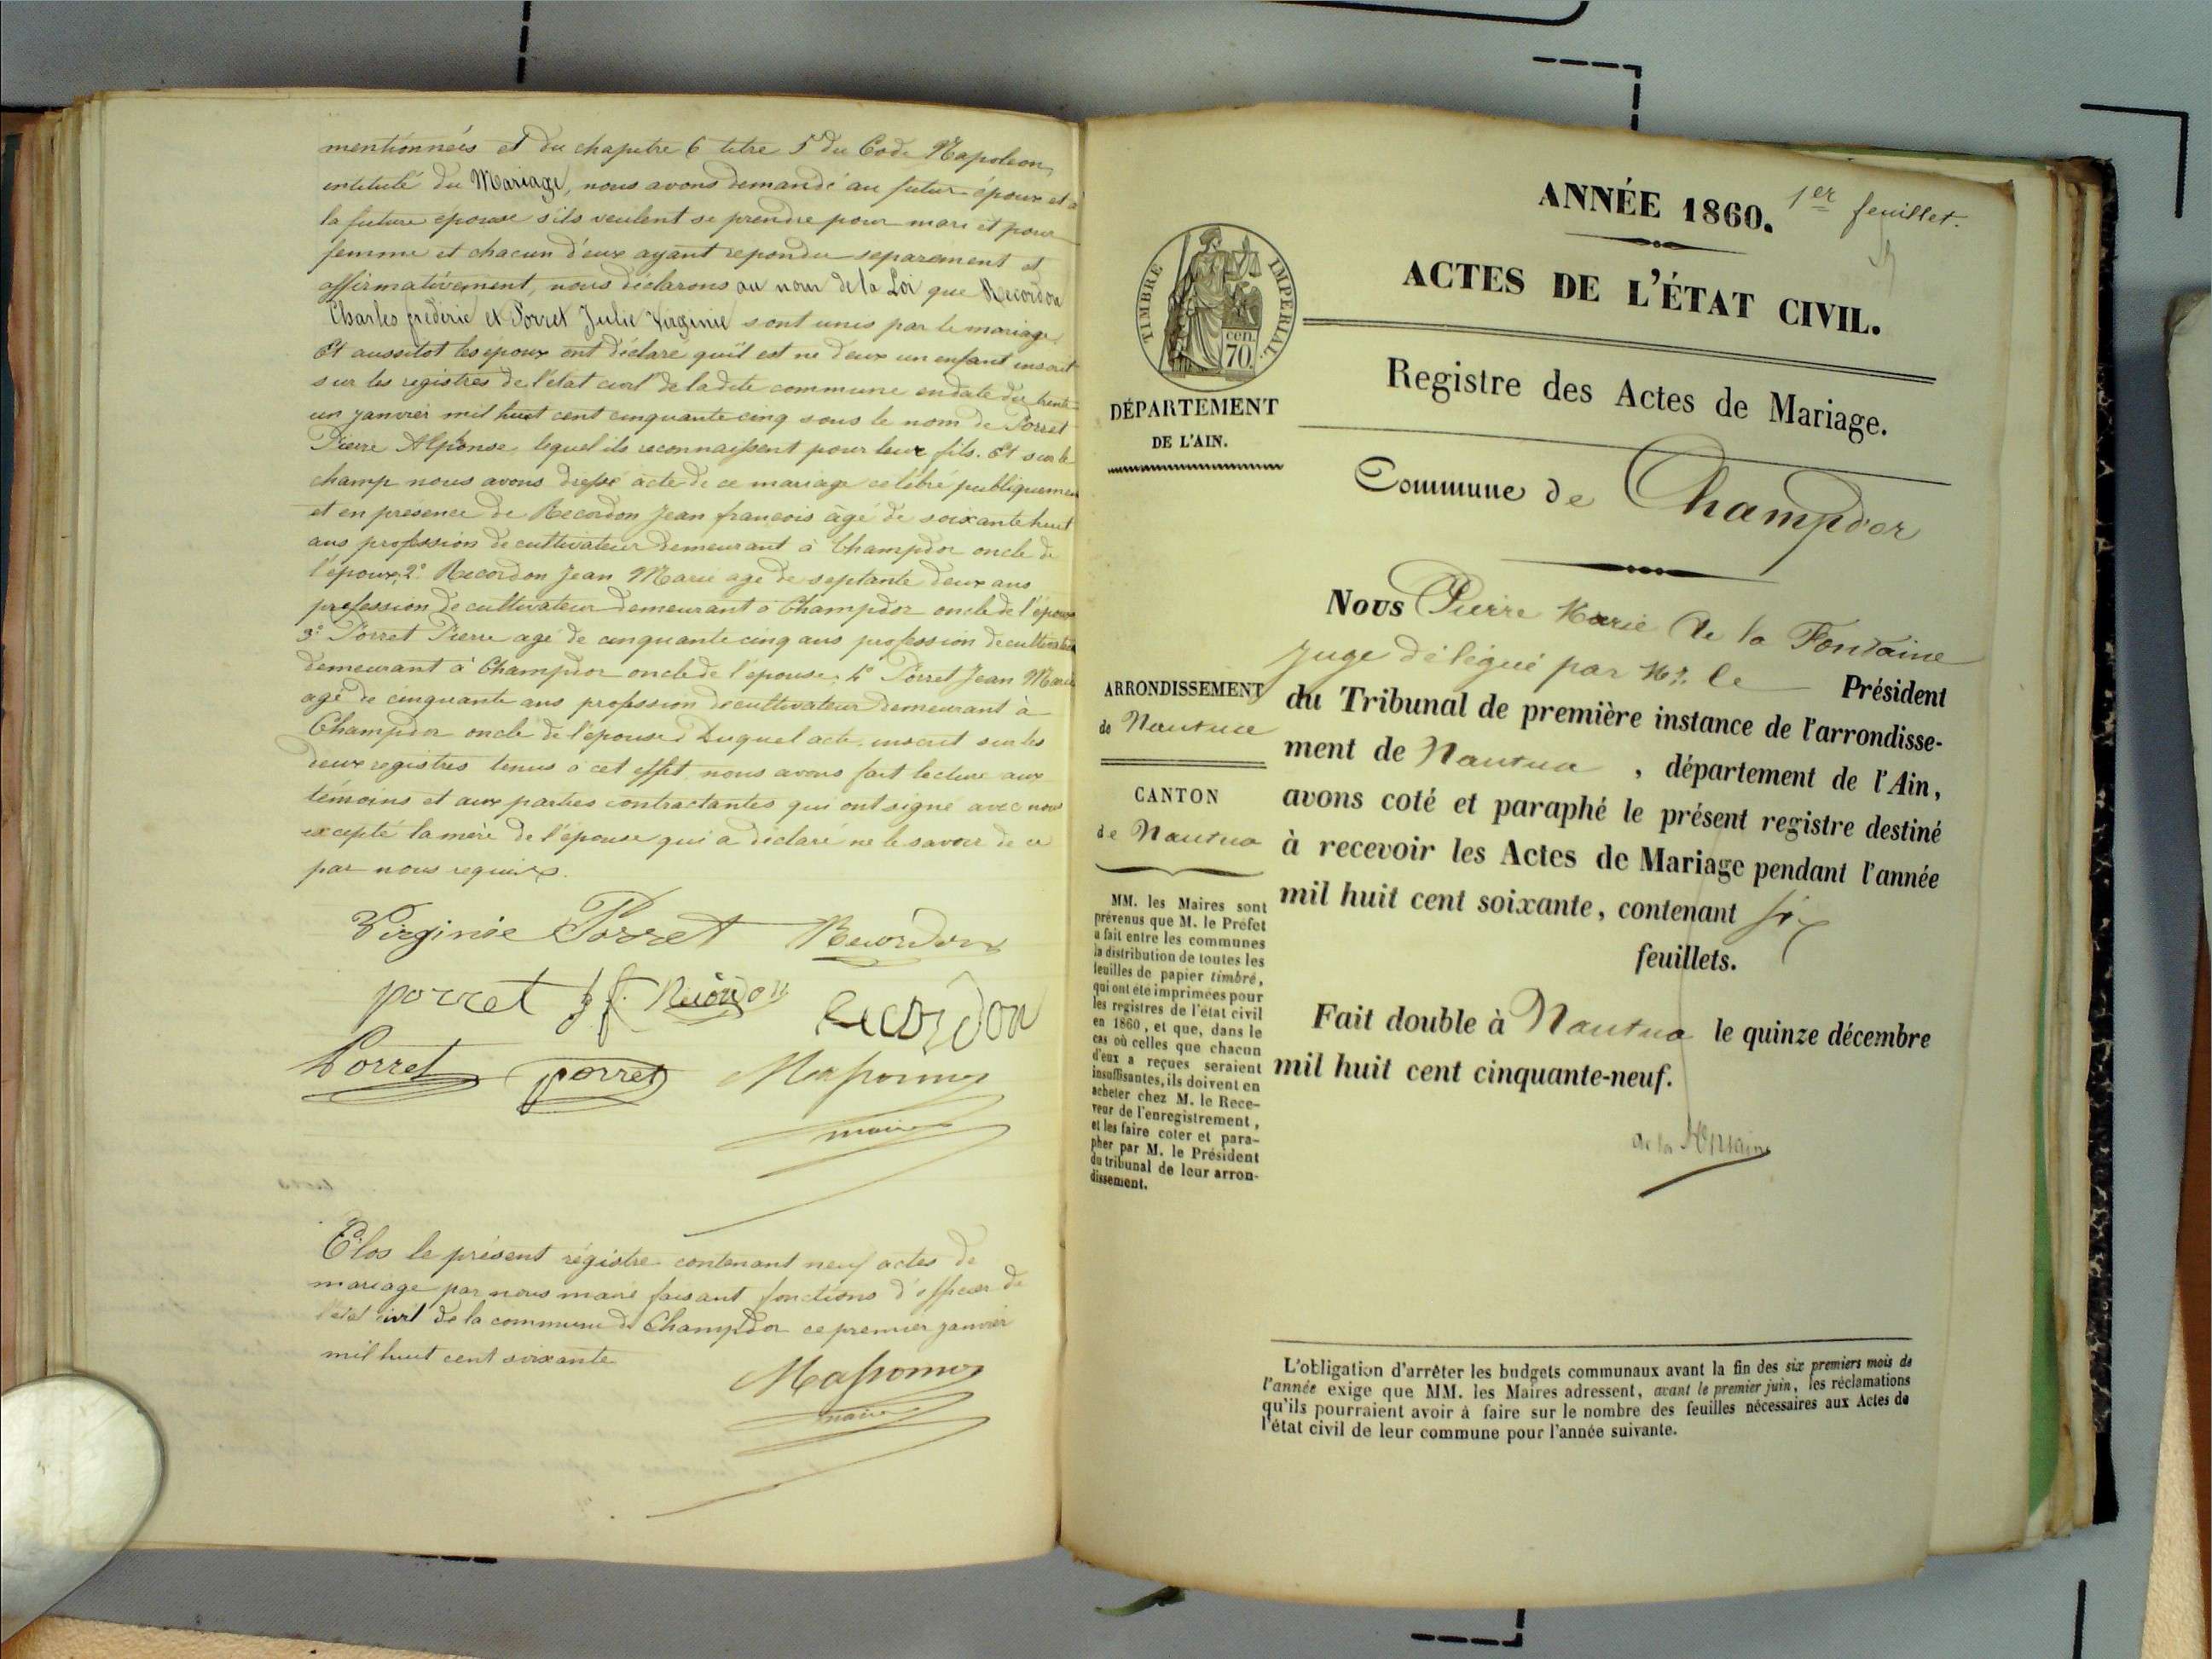 mentionnées et du chapitre 6 titre 5 du Code Napoleon,
intitulé du Mariage, nous avons demandé au futur époux et à
la future épouse s'ils veulent se prendre pour mari et pour
femme et chacun d'eux ayant repondu separément et
affirmativement, nous déclarons au nom de la Loi que Recordon
Charles frédéric et Porret Julie Virginie sont unis par le mariage.
Et aussitot les époux ont déclaré qu'il est né d'eux un enfant inscrit
sur les registres de l'état civil de ladite commune en date du trente
un janvier mil huit cent cinquante cinq sous le nom de Porret
Pierre Alponse, lequel ils reconnaissent pour leur fils. Et sur le
champ nous avons dressé acte de ce mariage célébré publiquement
et en présence de Recordon Jean francois âgé de soixante huit
ans profession de cultivateur demeurant à Champdor oncle de
l'époux, 2° Recordon Jean Marie agé de septante deux ans
profession de cultivateur demeurant à Champdor oncle de l'époux
3° Porret Pierre agé de cinquante cinq ans profession de cultivateur
demeurant à Champdor oncle de l'épouse, 4° Porret Jean Marie
agé de cinquante ans profession de cultivateur demeurant à
Champdor oncle de l'épouse. Duquel acte, inscrit sur les
deux registres tenus à cet effet, nous avons fait lecture aux
témoins et aux parties contractantes qui ont signé avec nous
excepté la mère de l'épouse qui a déclaré ne le savoir de ce
par nous requise.
Virginie Porret Recordon
porret j f. Recordon Recordon
Porret porret
maire
Clos le présent régistre contenant neuf actes de
mariage par nous maire faisant fonctions d'officier de
l'état civil de la commune de Champdor ce premier janvier
mil huit cent soixante
maire
ANNÉE 1860. 1er feuillet.
ACTES DE L'ÉTAT CIVIL.
TIMBRE IMPÉRIAL.
cen.
70.
DÉPARTEMENT
DE L'AIN.
Registre des Actes de Mariage.
Commune de Champdor
Nous Pierre Marie De la Fontaine
juge délégué par Mr. le Président
du Tribunal de première instance de l'arrondisse-
ment de Nantua, département de l'Ain,
avons coté et paraphé le présent registre destiné
à recevoir les Actes de Mariage pendant l'année
mil huit cent soixante, contenant six
feuillets.
Fait double à Nantua le quinze décembre
mil huit cent cinquante-neuf.
de la Fontaine
ARRONDISSEMENT
de Nantua
CANTON
de Nantua
MM. les Maires sont
prévenus que M. le Préfet
a fait entre les communes
la distribution de toutes les
feuilles de papier timbré,
qui ont été imprimées pour
les registres de l'état civil
en 1860, et que, dans le
cas où celles que chacun
d'eux a reçues seraient
insuffisantes, ils doivent en
acheter chez M. le Rece-
veur de l'enregistrement,
et les faire coter et para-
pher par M. le Président
du tribunal de leur arron-
dissement.
L'obligation d'arrêter les budgets communaux avant la fin des six premiers mois de
l'année exige que MM. les Maires adressent, avant le premier juin, les réclamations
qu'ils pourraient avoir à faire sur le nombre des feuilles nécessaires aux Actes de
l'état civil de leur commune pour l'année suivante.